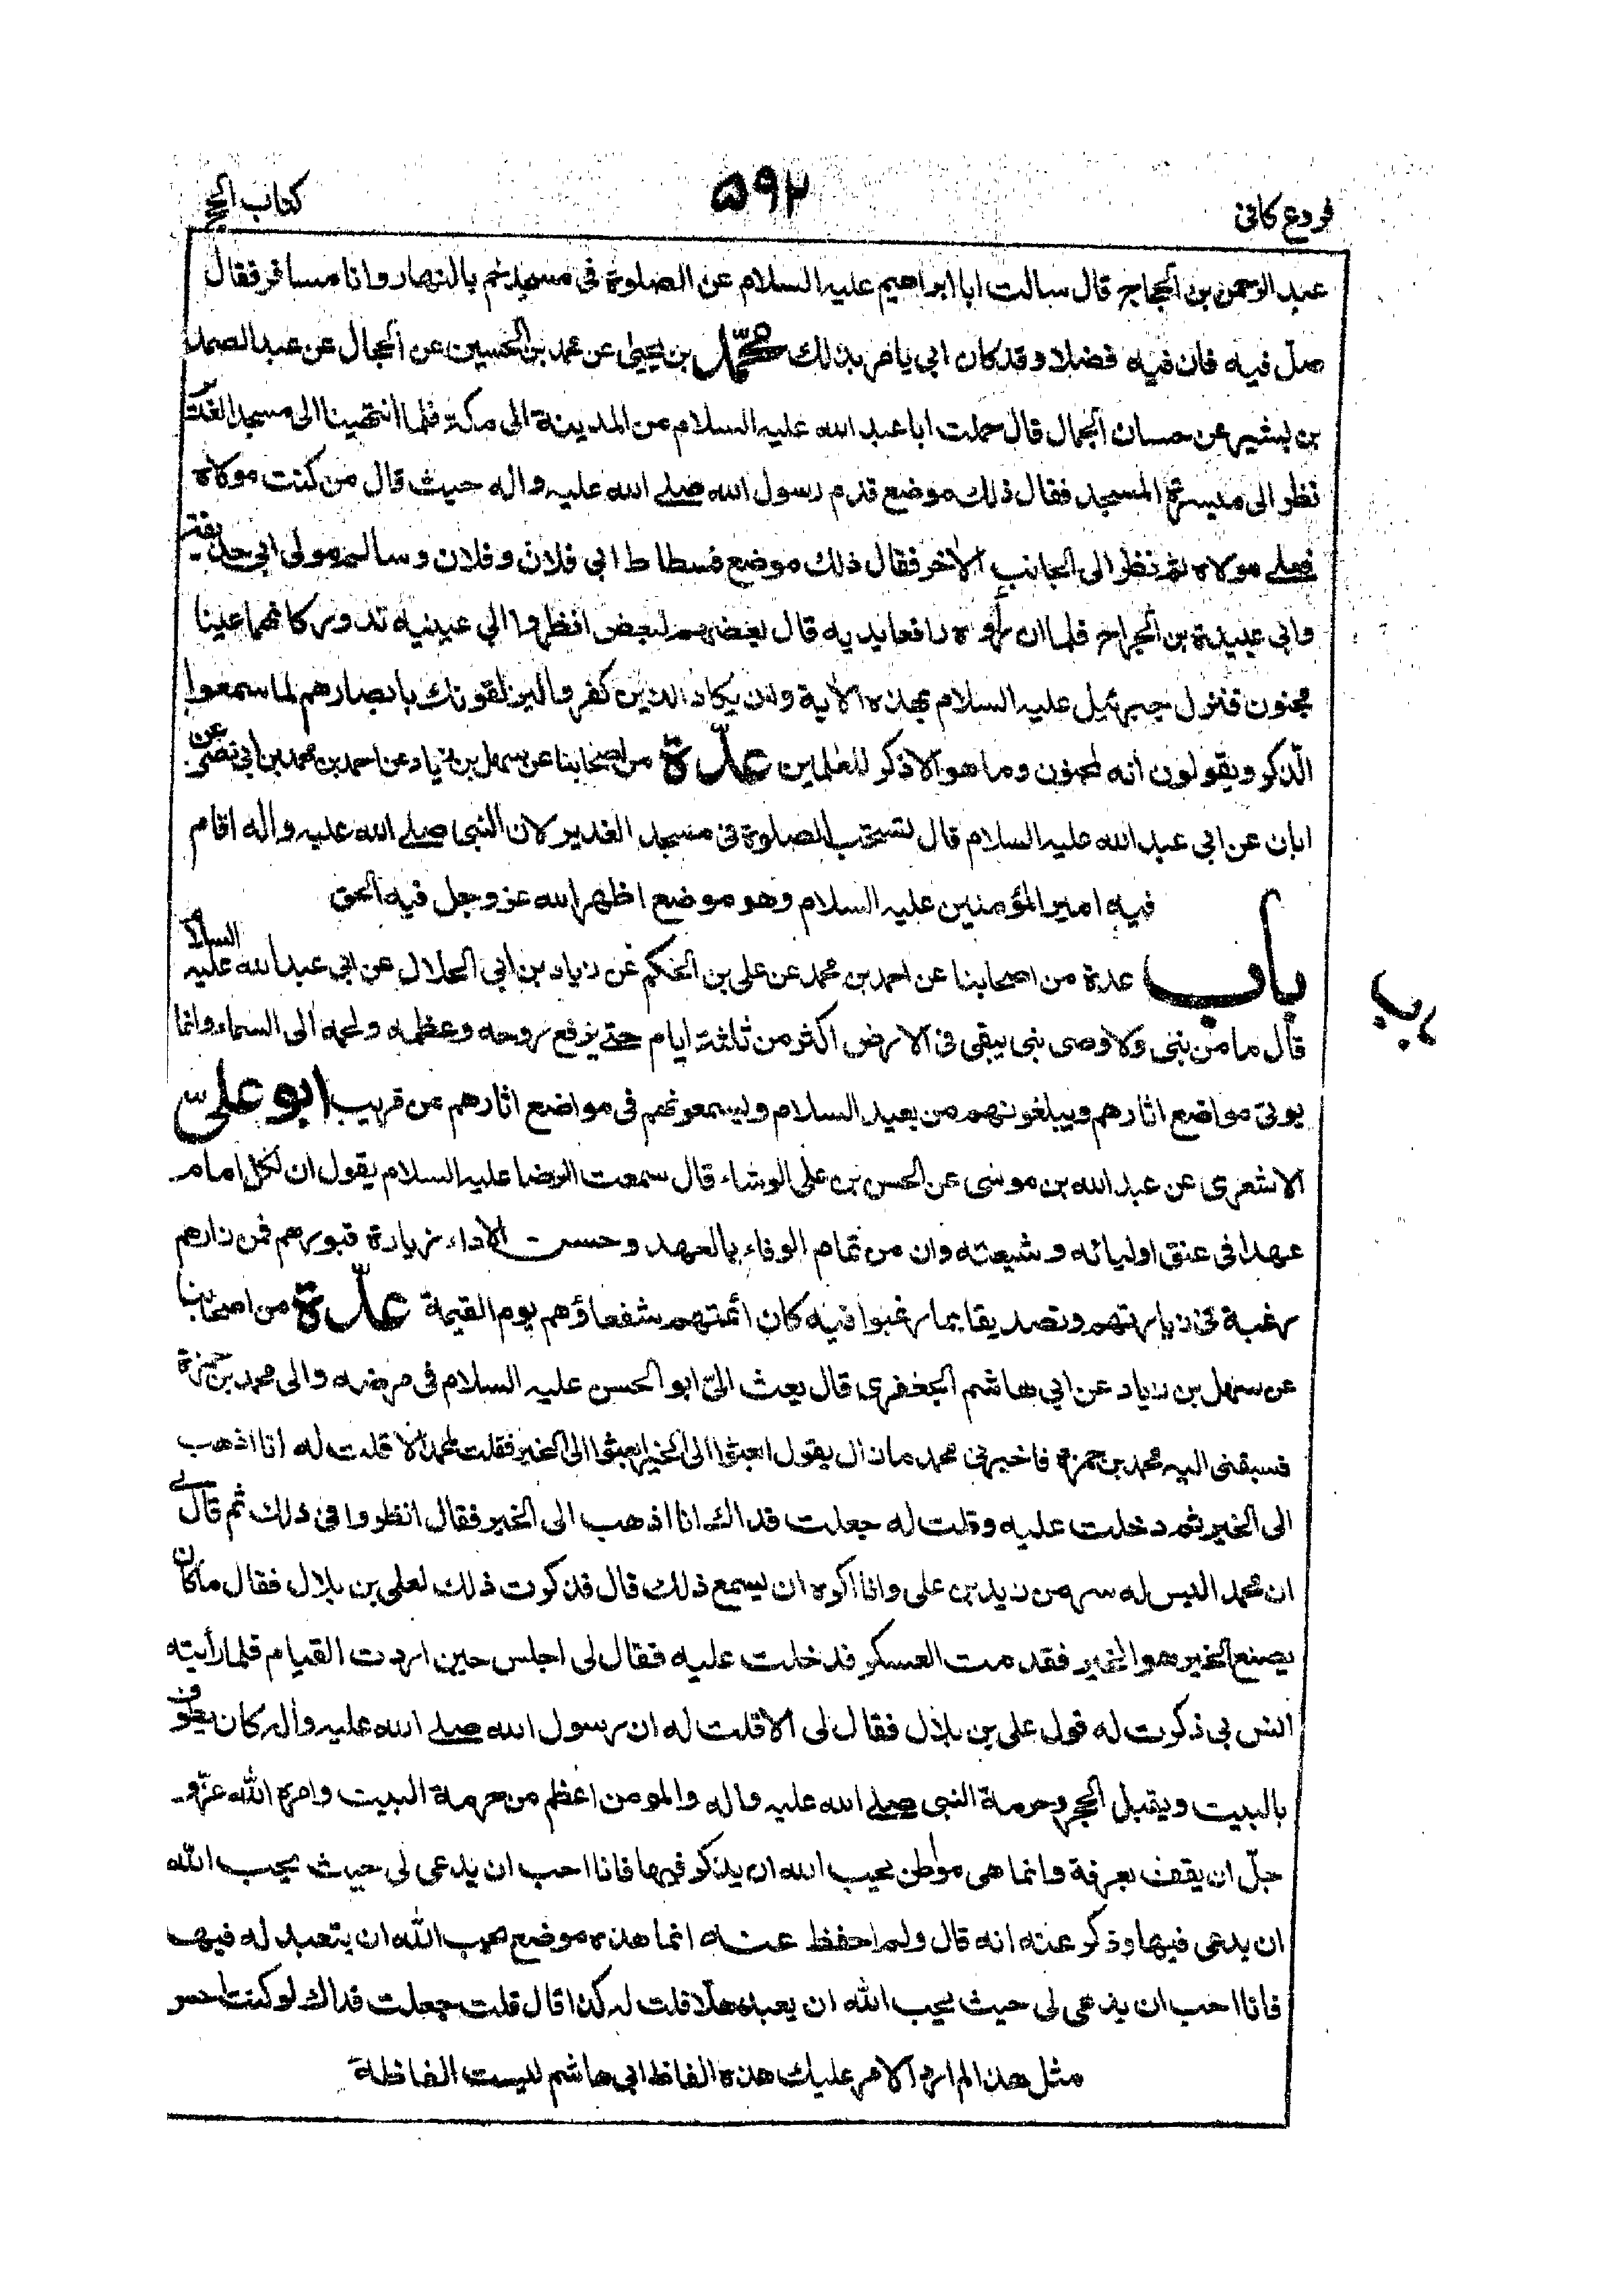 فروع کافی
۵۹۲
کتاب الحج
عبد الرحمن بن الحجاج قال سالت ابا ابراهیم علیه السلام عن الصلوة فی مسجد خم بالنهار وانا مسافر فقال
صل فیه فان فیه فضلا وقد کان ابی یامر بذلك محمّد بن یحیی عن محمد بن الحسین عن الحجال عن عبد الصمد
بن بشیر عن حسان الجمال قال حملت ابا عبد الله علیه السلام من المدینة الی مکة فلما انتهینا الی مسجد الغدیر
نظر الی میسرة المسجد فقال ذلك موضع قدم رسول الله صلی الله علیه واله حیث قال من کنت مولاه
فعلی مولاه ثم نظر الی الجانب الاخر فقال ذلك موضع فسطاط ابی فلان وفلان وسالم مولی ابی حذیفة
وابی عبیدة بن الجراح فلما ان رأوه رافعا یدیه قال بعضهم لبعض انظروا الی عینیه تدور کانهما عینا
مجنون فنزل جبرئیل علیه السلام بهذه الآیة وان یکاد الذین کفروا لیزلقونك بابصارهم لما سمعوا
الّذکر ویقولون انه لمجنون وما هو الا ذکر للعلمین عدّة من اصحابنا عن سهل بن زیاد عن احمد بن محمد بن ابی نصر عن
ابان عن ابی عبد الله علیه السلام قال تستحب الصلوة فی مسجد الغدیر لان النبی صلی الله علیه واله اقام
فیه امیر المؤمنین علیه السلام وهو موضع اظهر الله عز وجل فیه الحق
باب عدة من اصحابنا عن احمد بن محمد عن علی بن الحکم عن زیاد بن ابی الحلال عن ابی عبد الله علیه السلام
باب
قال ما من نبی ولا وصی نبی یبقی فی الارض اکثر من ثلثة ایام حتی یرفع بروحه وعظمه ولحمه الی السماء وانما
یوتی مواضع اثارهم ویبلغونهم من بعید السلام ویسمعونهم فی مواضع اثارهم من قریب ابو علی
الاشعری عن عبد الله بن موسی عن الحسن بن علی الوشاء قال سمعت الرضا علیه السلام یقول ان لکل امام
عهدا فی عنق اولیائه وشیعته وان من تمام الوفاء بالعهد وحسن الاداء زیارة قبورهم فمن زارهم
رغبة فی زیارتهم وتصدیقا بما رغبوا فیه کان أئمتهم شفعاؤهم یوم القیمة عدّة من اصحابنا
عن سهل بن زیاد عن ابی هاشم الجعفری قال بعث الیّ ابو الحسن علیه السلام فی مرضه والی محمد بن حمزة
فسبقنی الیه محمد بن حمزة فاخبرنی محمد ما زال یقول ابعثوا الی الخیر ابعثوا الی الخیر فقلت لمحمد الا قلت له انا اذهب
الی الخیر ثم دخلت علیه وقلت له جعلت فداك انا اذهب الی الخیر فقال انظروا فی ذلك ثم قال لی
ان محمدا لیس له سر من زید بن علی وانا اکره ان یسمع ذلك قال فذکرت ذلك لعلی بن بلال فقال ما کان
یصنع الخیر هو الخیر فقدمت العسکر فدخلت علیه فقال لی اجلس حین اردت القیام فلما رأیته
انس بی ذکرت له قول علی بن بلال فقال لی الا قلت له ان رسول الله صلی الله علیه واله کان یطوف
بالبیت ویقبل الحجر وحرمة النبی صلی الله علیه واله والمومن اعظم من حرمة البیت وامره الله عزّو
جلّ ان یقف بعرفة وانما هی مواطن یحب الله ان یذکر فیها فانا احب ان یدعی لی حیث یحب الله
ان یدعی فیها وذکر عنه انه قال ولم احفظ عنه انما هذه مواضع یحب الله ان یتعبد له فیها
فانا احب ان یدعی لی حیث یحب الله ان یعبد هلّا قلت له کذا قال قلت جعلت فداك لو کنت احسن
مثل هذا لم ارد الامر علیك هذه الفاظ ابی هاشم لیست الفاظه